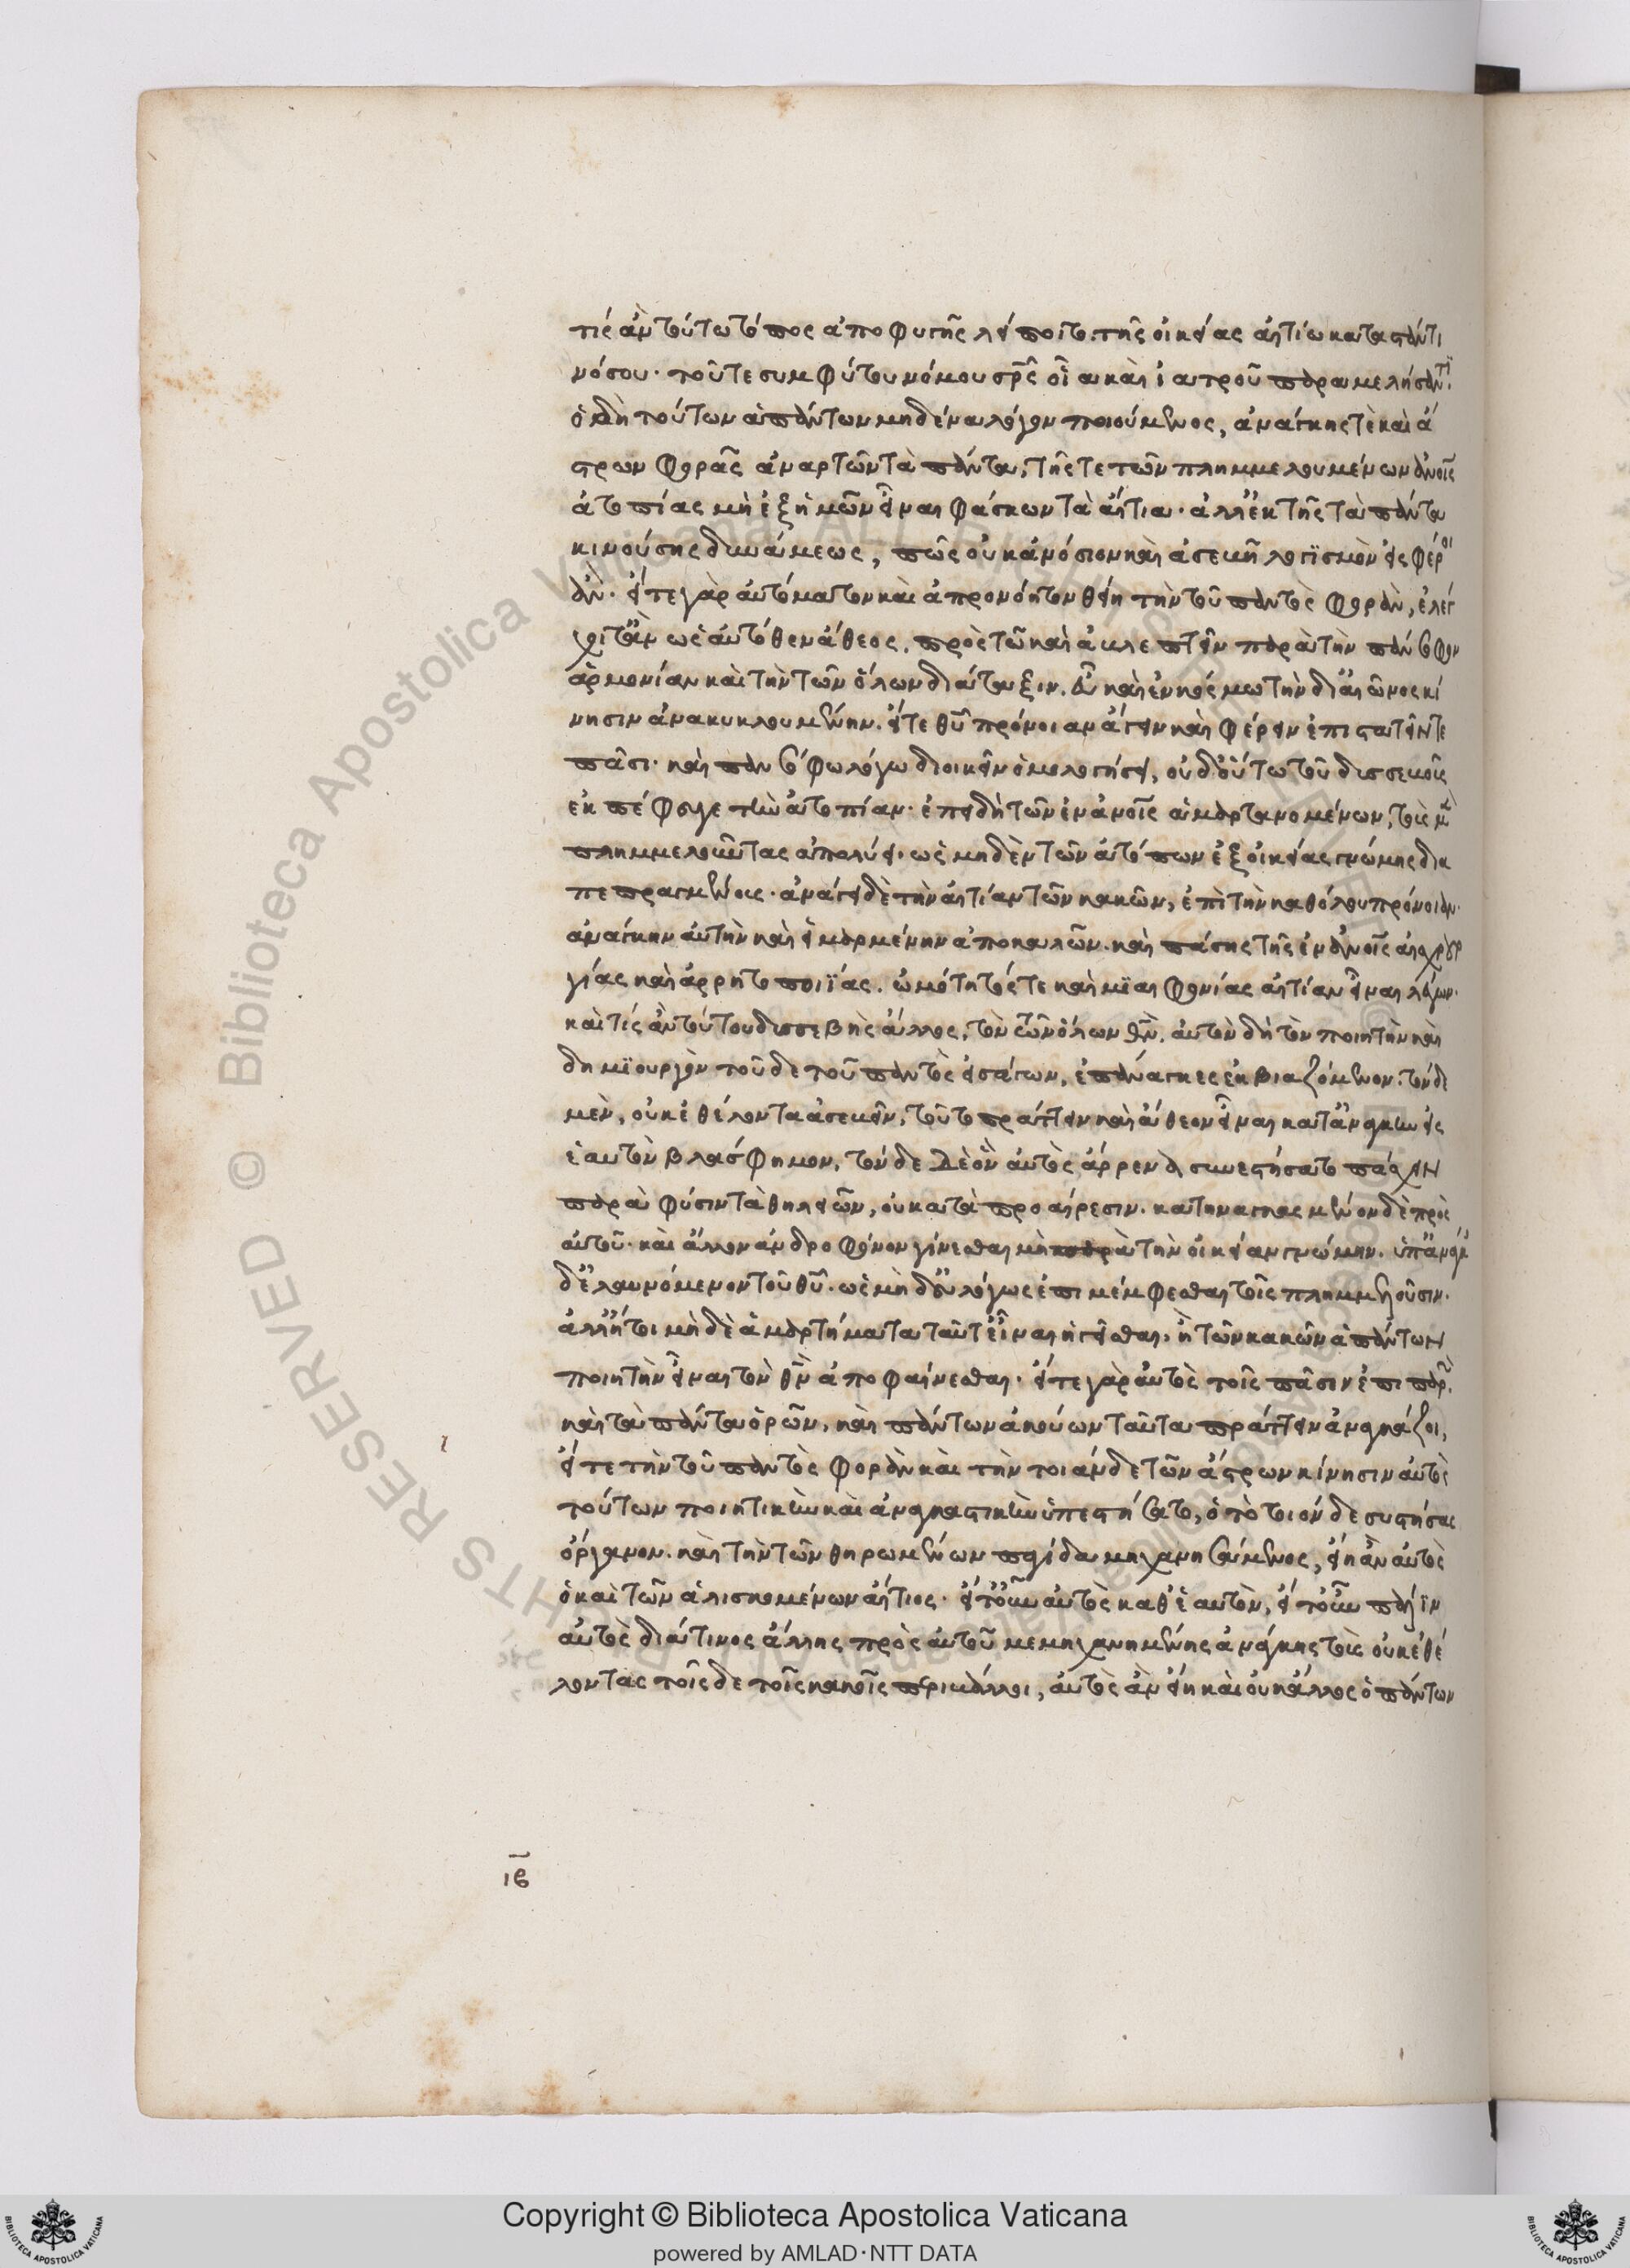 τίς ἂν τούτω τόπος ἀποφυγῆς λείποιτο. τῆς οἰκείας αἰτίω καταστάντι
νόσου. τοῦτε συμφύτου νόμου σπρς οἷα καὶ ἰατροῦ παραμελήσαντι.
ὁ δὴ τούτων ἁπάντων μηδένα λόγον ποιούμενος, ἀνάγκης τὲ καὶ ἄ
στρων φορᾶς ἀναρτῶν τὰ πάντα, τῆς τε τῶν πλημμελουμένων ἀνοις
ἀτοπίας μὴ ἐξ ἡμῶν εἶναι φάσκων τὰ αἴτια. ἀλλ' ἐκ τῆς τὰ πάντα
κινούσης δυνάμεως, πῶς οὐκ ἀνόσιον καὶ ἀσεβῆ λογισμὸν εἰσφέροι
ἄν. εἴτε γὰρ αὐτόματον καὶ ἀπρονόητον θείη τὴν τοῦ παντὸς φορὰν, ἐλέγ
χοιτ' ἂν ὡς αὐτόθεν ἄθεος. πρὸς τῶ καὶ ἀβλεπτεῖν παρὰ τὴν πάνσοφον
ἁρμονίαν καὶ τὴν τῶν ὅλων διάταξιν. εὖ καὶ ἐν κόσμω τὴν δι' αἰῶνος κί
νησιν ἀνακυκλουμένην. εἴτε θυ πρόνοιαν ἄγειν καὶ φέρειν ἐπιστατεῖν τε
πᾶσι. καὶ πανσόφω λόγω διοικεῖν ὁμολογήσει, οὐδ' οὕτω τοῦ δυσσεβοῦς
ἐκπέφευγε τὴν ἀτοπίαν. ἐπειδὴ τῶν ἐν ἀνοις ἁμαρτανομένων, τοὺς μὲν
πλημμελοῦντας ἀπολύει. ὡς μηδὲν τῶν ἀτόπων ἐξ οἰκείας γνώμης δια
πεπραγμένους. ἀνάγει δὲ τὴν αἰτίαν τῶν κακῶν, ἐπὶ τὴν καθόλου πρόνοιαν.
ἀνάγκην αὐτὴν καὶ εἱμαρμένην ἀποκαλῶν. καὶ πάσης τῆς ἐν ἀνοις αἰσχρουρ
γίας καὶ ἀρρητοποιίας. ὠμότητός τε καὶ μιαιφονίας αἰτίαν εἶναι λέγων.
καὶ τίς ἂν τούτου δυσσεβὴς ἄλλος, τὸν τῶν ὅλων θν. αὐτὸν δὴ τὸν ποιητὴν καὶ
δημιουργὸν τοῦδε τοῦ παντὸς εἰσάγων, ἐπάναγκες ἐκβιαζόμενον. τόνδε
μὲν, οὐκ ἐθέλοντα ἀσεβεῖν, τοῦτο πράττειν καὶ ἄθεον εἶναι κατ' ἀνάγκην εἰς
ἑαυτὸν βλάσφημον, τόνδε δὲ ὃν αὐτὸς ἄρρενα συνεστήσατο πάσχειν
παρὰ φύσιν τὰ θηλειῶν, οὐ κατὰ προαίρεσιν. κατηναγκασμένον δὲ πρὸς
αὐτοῦ. καὶ ἄλλον ἀνδροφόνον γίνεσθαι μὴ παρὰ τὴν οἰκείαν γνώμην. ὑπ' ἀνάγκης
δ' ἐλαυνόμενον τοῦ θυ. ὡς μὴ δ' εὐλόγως ἐπιμέμφεσθαι τοῖς πλημμελοῦσιν.
ἀλλ' ἤτοι μηδὲ ἁμαρτήματα ταῦτ' εἶναι ἡγεῖσθαι. ἢ τῶν κακῶν ἁπάντων
ποιητὴν εἶναι τὸν θν ἀποφαίνεσθαι. εἴτε γὰρ αὐτὸς τοῖς πᾶσιν ἐπιπαρὼν
καὶ τὰ πάντα ὁρῶν, καὶ πάντων ἀκούων ταῦτα πράττειν ἀναγκάζοι,
εἴτε τὴν τοῦ παντὸς φορὰν καὶ τὴν τοιάνδε τῶν ἄστρων κίνησιν αὐτὸς
τούτων ποιητικὴν καὶ ἀναγκαστικὴν ὑπεστήσατο, ὁ τὸ τοιόνδε συστήσας
ὄργανον. καὶ τὴν τῶν θηρωμένων παγίδα μηχανησάμενος, εἴη ἂν αὐτὸς
ὁ καὶ τῶν ἁλισκομένων αἴτιος. εἴτ' οὖν αὐτὸς καθ' ἑαυτὸν, εἴτ' οὖν πάλιν
αὐτὸς διά τινος ἄλλης πρὸς αὐτοῦ μεμηχανημένης ἀνάγκης τοὺς οὐκ ἐθέ
λοντας τοῖσδε τοῖς κακοῖς περιβάλλοι, αὐτὸς ἂν εἴη καὶ οὐκ ἄλλος ὁ πάντων
ιϛ
Copyright © Biblioteca Apostolica Vaticana
powered by AMLAD·NTT DATA